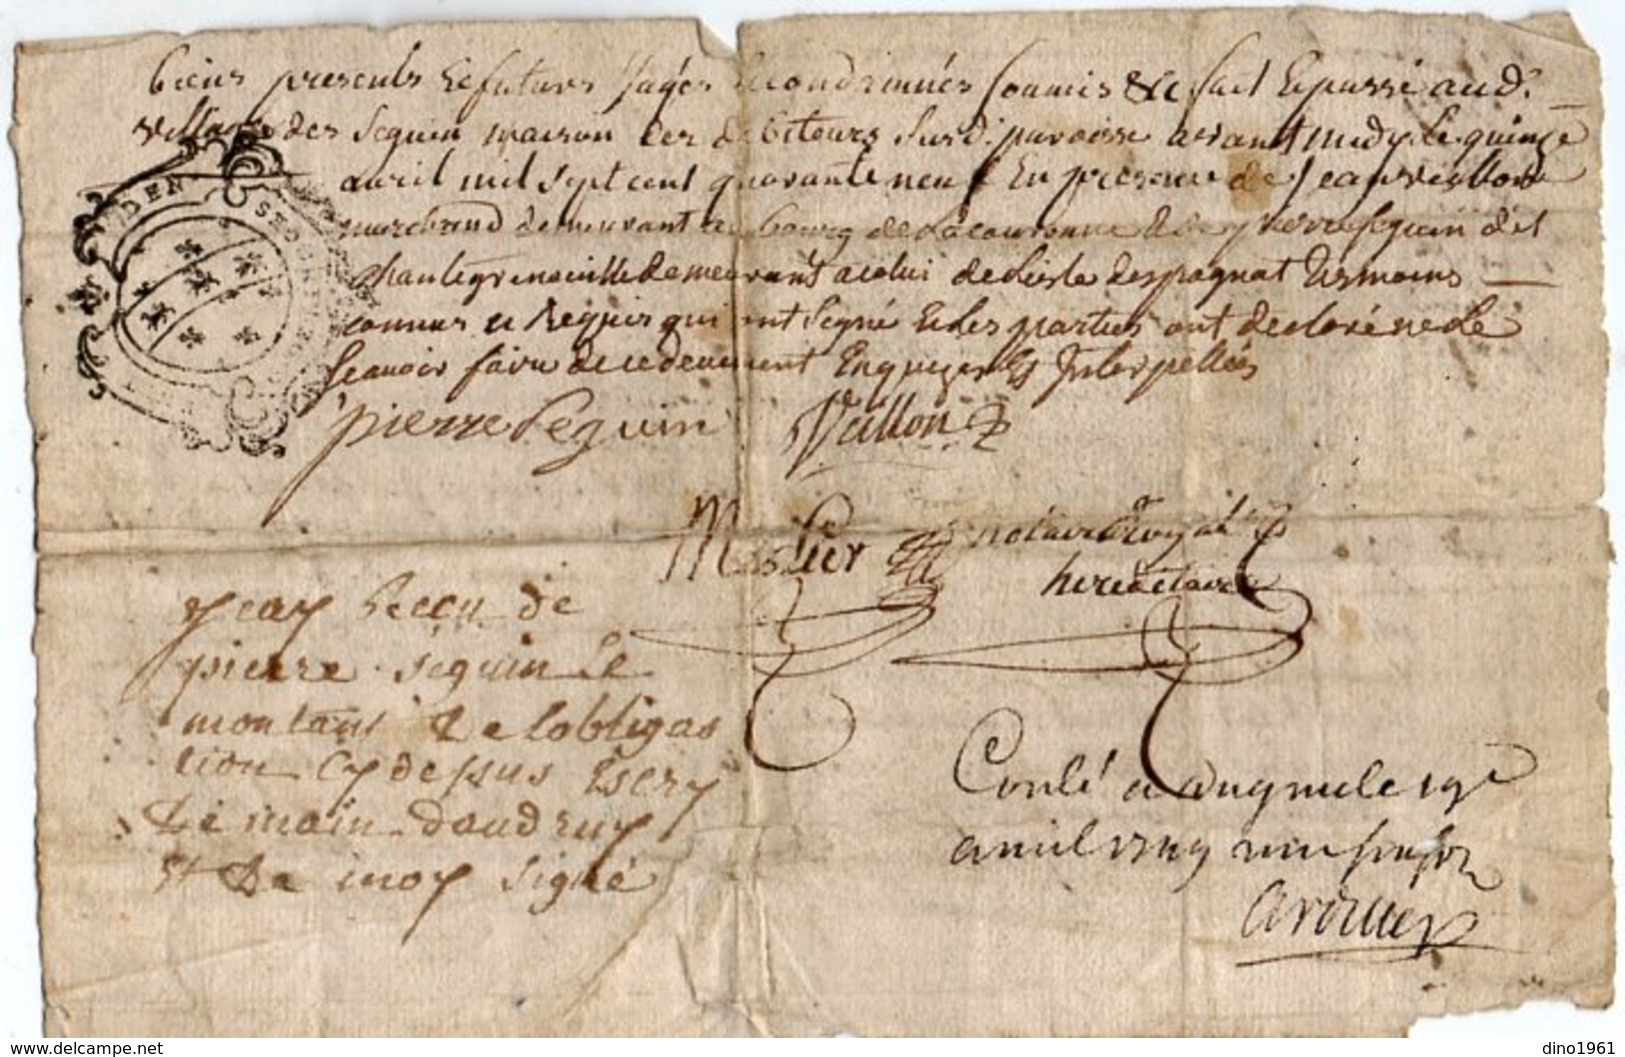 biens presents & futurs Jugés & condemnés soumis &c fait & passé aud.
village des Seguin maison des debiteurs susd. paroisse avant midy le quinze
avril mil sept cent quarante neuf En presence de Jean Veillon
marchand demeurant au bourg de Lacouronne & de pierre Seguin dit
Chantegrenouille demeurant a celui de Lisle despagnat temoins
connus et Requis qui ont Signé & les parties ont declaré ne le
scavoir faire de ce deuement Enquezes & Interpellées
pierre Séguin Veillon
Meslier notaire Royal
hereditaire
Jeay Recu de
pierre seguin le
montant de lobligas
tion cy desus Escry
de main daudruy
et de moy signé
Conlé a le 19e
avril 1749
DEN
dino1961
www.delcampe.net